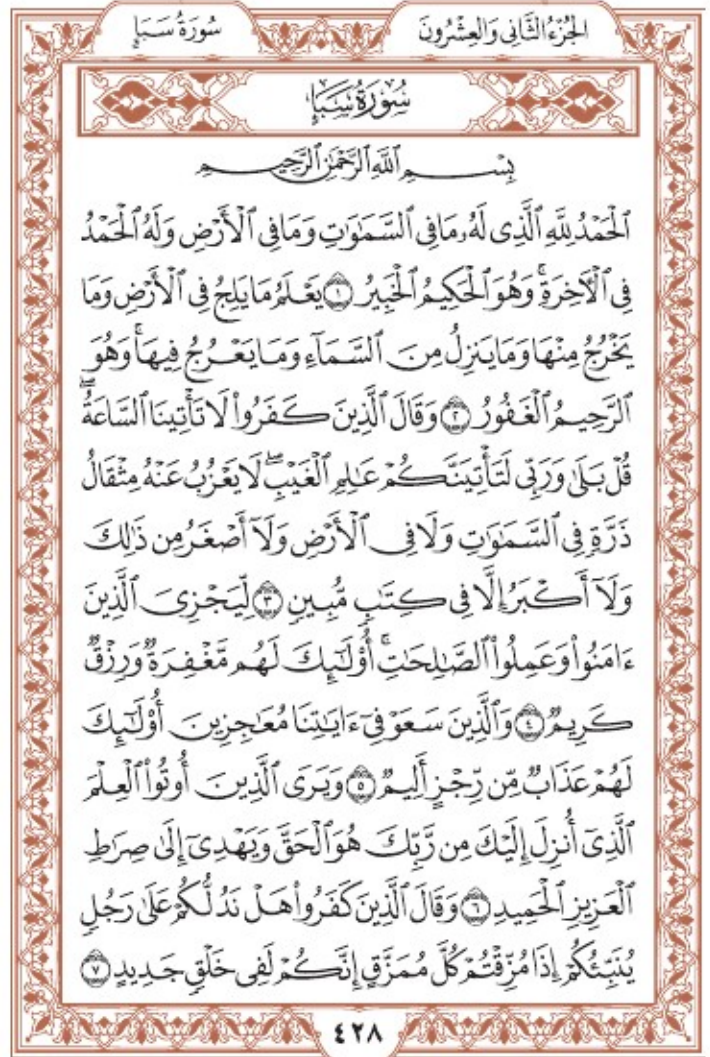 الجُزْءُ الثَّانِي وَالعِشْرُونَ
سُورَةُ سَبَإٍ
سُورَةُ سَبَإٍ
بِسْمِ ٱللَّهِ ٱلرَّحْمَٰنِ ٱلرَّحِيمِ
ٱلْحَمْدُ لِلَّهِ ٱلَّذِى لَهُۥ مَا فِى ٱلسَّمَٰوَٰتِ وَمَا فِى ٱلْأَرْضِ وَلَهُ ٱلْحَمْدُ
فِى ٱلْأٓخِرَةِۚ وَهُوَ ٱلْحَكِيمُ ٱلْخَبِيرُ ١ يَعْلَمُ مَا يَلِجُ فِى ٱلْأَرْضِ وَمَا
يَخْرُجُ مِنْهَا وَمَا يَنزِلُ مِنَ ٱلسَّمَآءِ وَمَا يَعْرُجُ فِيهَاۚ وَهُوَ
ٱلرَّحِيمُ ٱلْغَفُورُ ٢ وَقَالَ ٱلَّذِينَ كَفَرُوا۟ لَا تَأْتِينَا ٱلسَّاعَةُۖ
قُلْ بَلَىٰ وَرَبِّى لَتَأْتِيَنَّكُمْ عَٰلِمِ ٱلْغَيْبِۖ لَا يَعْزُبُ عَنْهُ مِثْقَالُ
ذَرَّةٍ فِى ٱلسَّمَٰوَٰتِ وَلَا فِى ٱلْأَرْضِ وَلَآ أَصْغَرُ مِن ذَٰلِكَ
وَلَآ أَكْبَرُ إِلَّا فِى كِتَٰبٍ مُّبِينٍ ٣ لِّيَجْزِىَ ٱلَّذِينَ
ءَامَنُوا۟ وَعَمِلُوا۟ ٱلصَّٰلِحَٰتِۚ أُو۟لَٰٓئِكَ لَهُم مَّغْفِرَةٌ وَرِزْقٌ
كَرِيمٌ ٤ وَٱلَّذِينَ سَعَوْ فِىٓ ءَايَٰتِنَا مُعَٰجِزِينَ أُو۟لَٰٓئِكَ
لَهُمْ عَذَابٌ مِّن رِّجْزٍ أَلِيمٌ ٥ وَيَرَى ٱلَّذِينَ أُوتُوا۟ ٱلْعِلْمَ
ٱلَّذِىٓ أُنزِلَ إِلَيْكَ مِن رَّبِّكَ هُوَ ٱلْحَقَّ وَيَهْدِىٓ إِلَىٰ صِرَٰطِ
ٱلْعَزِيزِ ٱلْحَمِيدِ ٦ وَقَالَ ٱلَّذِينَ كَفَرُوا۟ هَلْ نَدُلُّكُمْ عَلَىٰ رَجُلٍ
يُنَبِّئُكُمْ إِذَا مُزِّقْتُمْ كُلَّ مُمَزَّقٍ إِنَّكُمْ لَفِى خَلْقٍ جَدِيدٍ ٧
٤٢٨